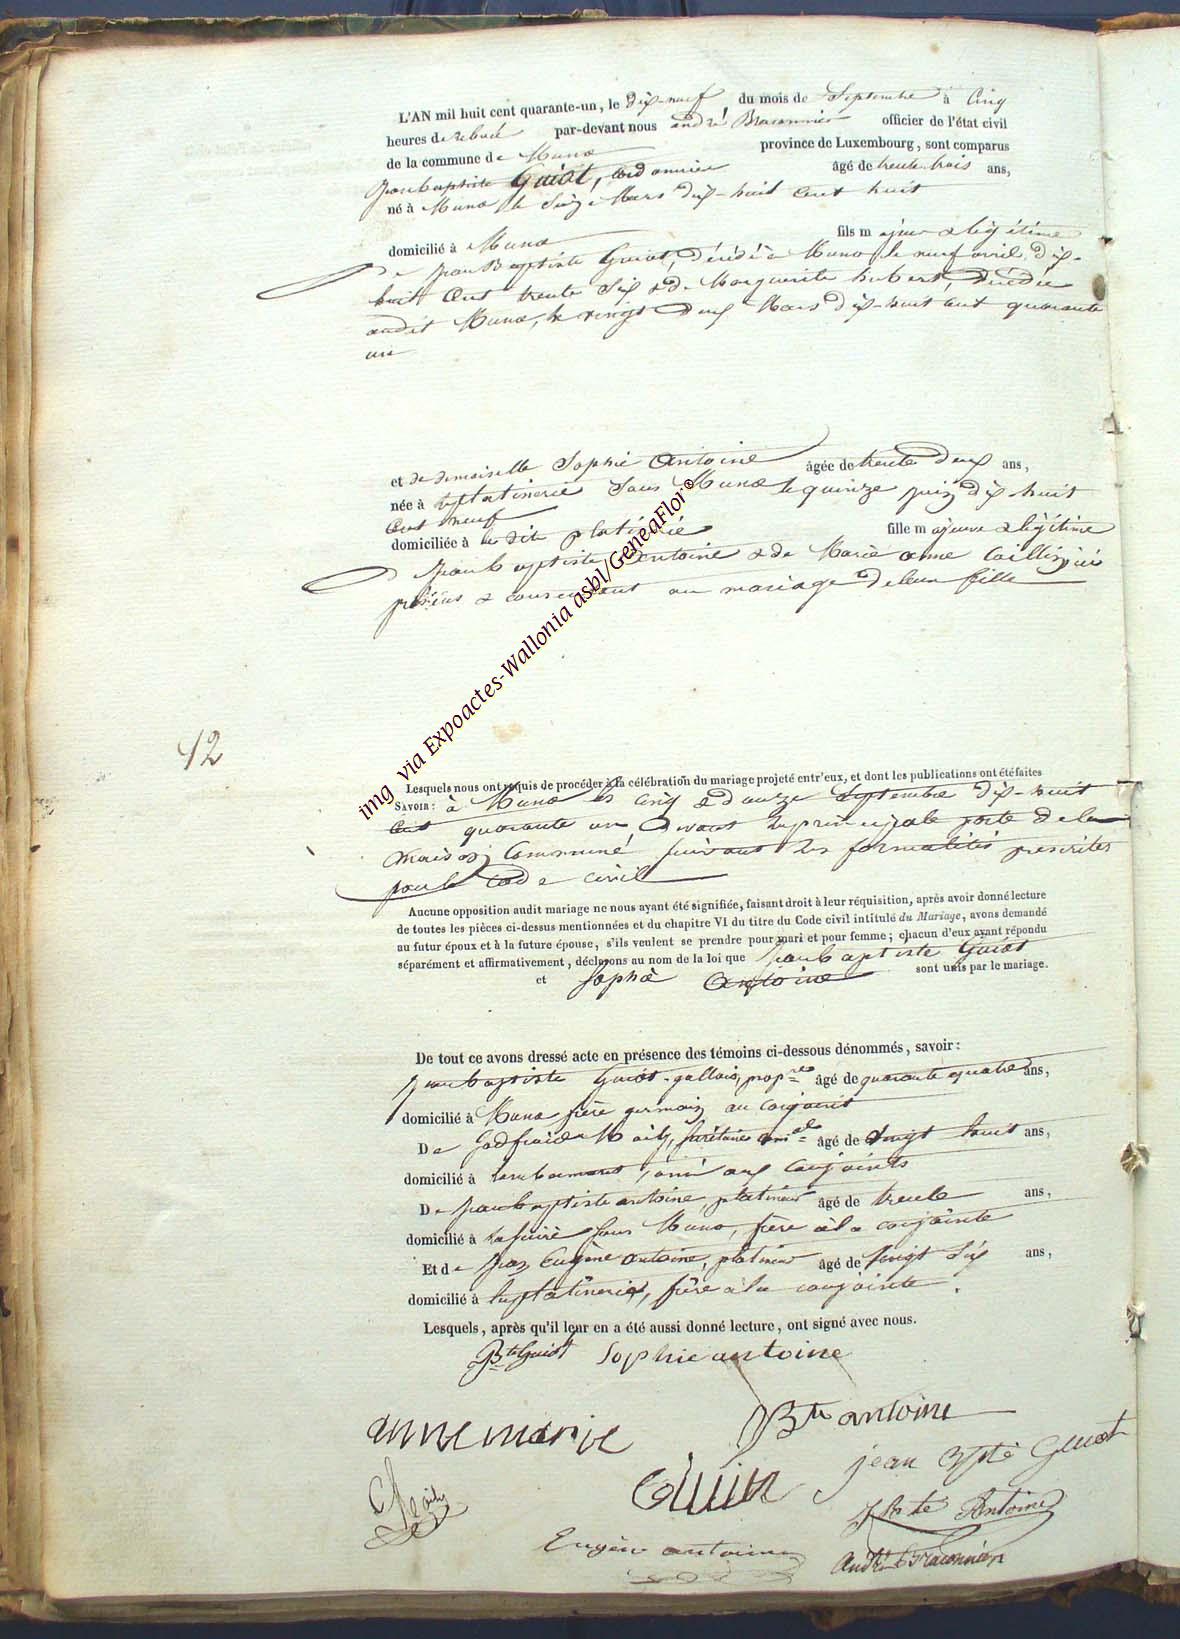 L'AN mil huit cent quarante-un, le dix-neuf du mois de Septembre à Cinq
heures de relevée par-devant nous andré Braconnier officier de l'état civil
de la commune de Muno province de Luxembourg, sont comparus
Jean baptiste Guiot, Cordonnier âgé de trente trois ans,
né à Muno le Seize Mars dix-huit cent huit
domicilié à Muno fils majeur & légitime
de Jean Baptiste Guiot, décédé à Muno le neuf avril dix-
huit Cent trente Six & de Marguerite hubert, décédée
audit Muno, le vingt deux Mars dix-huit cent quarante
un
et demoiselle Sophie Antoine âgée de trente deux ans,
née à laplatinerie Sous Muno le quinze juin dix huit
Cent neuf
domiciliée à la dite platinerie fille majeure & légitime
de Jean baptiste Antoine & de Marie anne ici
présens & consentant au mariage de leur fille
12
Lesquels nous ont requis de procéder à la célébration du mariage projeté entr'eux, et dont les publications ont été faites
SAVOIR : à Muno les cinq & douze Septembre dix-huit
Cent quarante un, devant la principale porte de la
maison Commune suivant les formalités prescrites
par le Code civil
Aucune opposition audit mariage ne nous ayant été signifiée, faisant droit à leur réquisition, après avoir donné lecture
de toutes les pièces ci-dessus mentionnées et du chapitre VI du titre du Code civil intitulé du Mariage, avons demandé
au futur époux et à la future épouse, s'ils veulent se prendre pour mari et pour femme ; chacun d'eux ayant répondu
séparément et affirmativement, déclarons au nom de la loi que Jean baptiste Guiot
et Sophie Antoine sont unis par le mariage.
De tout ce avons dressé acte en présence des témoins ci-dessous dénommés, savoir :
Jean baptiste Guiot-gallois, propre âgé de quarante quatre ans,
domicilié à Muno frère germain au conjoint
De Godfroid Noily, Secrétaire âgé de vingt huit ans,
domicilié à Lambermont, ami aux Conjoints
De Jean baptiste antoine, platineur âgé de trente ans,
domicilié à sous Muno, frère à la conjointe
Et de Jean Eugène antoine, platineur âgé de Vingt Six ans,
domicilié à la platinerie, frère à la conjointe.
Lesquels, après qu'il leur en a été aussi donné lecture, ont signé avec nous.
Bte Guiot Sophie antoine
anne marie JBte antoine
jean Bpte Guiot
JBte Antoine
Eugène antoine André Braconnier
img via Expoactes-Wallonia asbl/GeneaFloi©